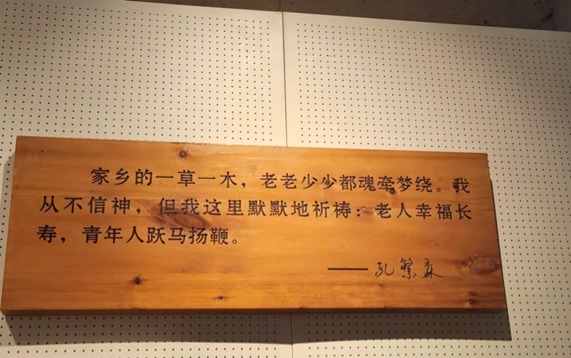 家乡的一草一木，老老少少都魂牵梦绕。我
从不信神，但我这里默默地祈祷：老人幸福长
寿，青年人跃马扬鞭。
——孔繁森